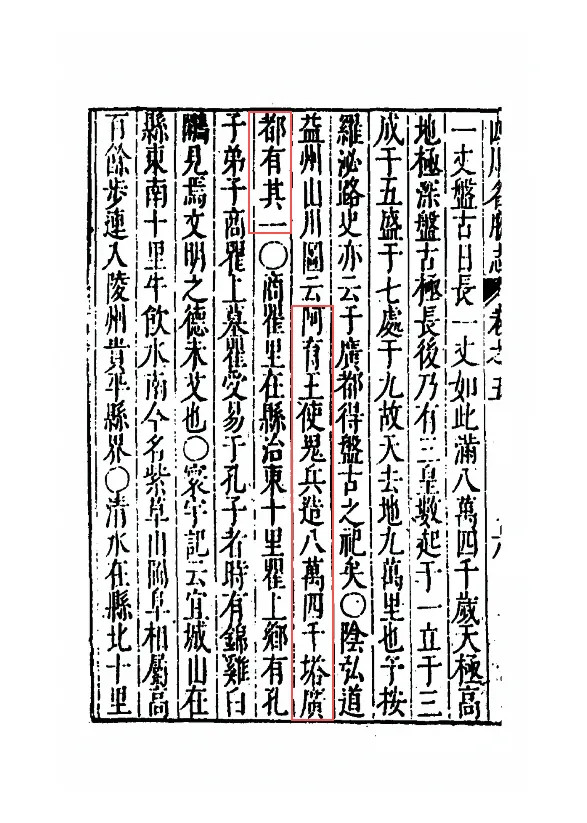 四川名勝志 卷之五
一丈盤古日長一丈如此滿八萬四千歲天極高
地極深盤古極長後乃有三皇數起于一立于三
成于五盛于七處于九故天去地九萬里也予按
羅泌路史亦云于廣都得盤古之祀矣〇陰弘道
益州山川圖云阿育王使鬼兵造八萬四千塔廣
都有其一〇商瞿里在縣治東十里瞿上鄉有孔
子弟子商瞿上墓瞿受易于孔子者時有錦雞白
鷴見焉文明之德未艾也〇寰宇記云宜城山在
縣東南十里牛飲水南今名紫草山岡阜相屬高
百餘步連入陵州貴平縣界〇清水在縣北十里